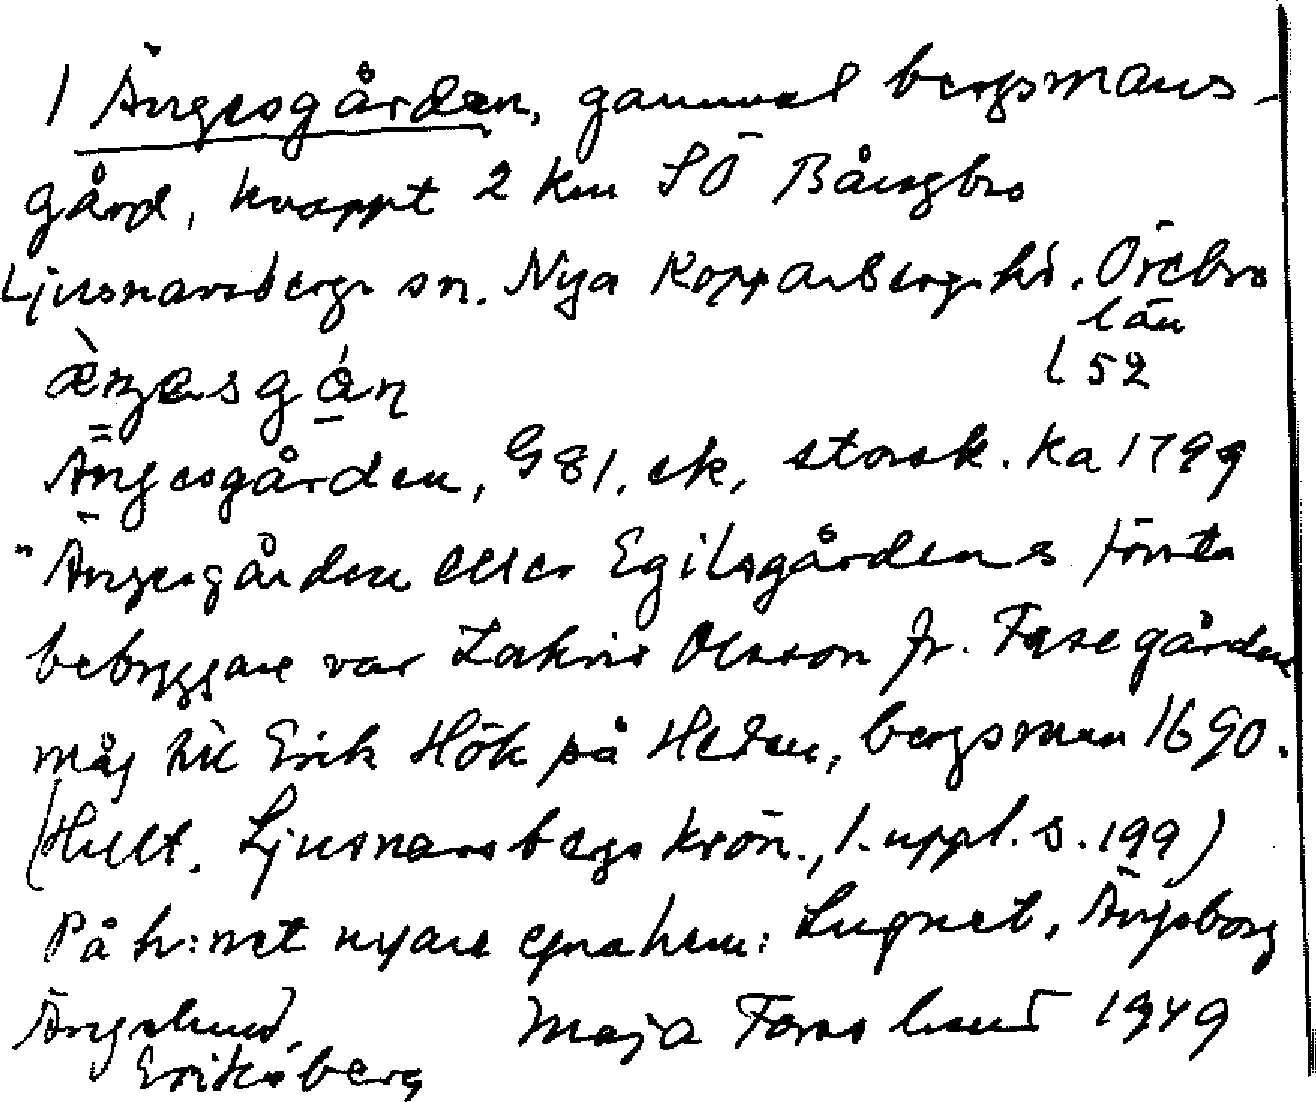 1 Ängesgården, gammal bergsmans-
gård, knappt 2 km SÖ Bångbro
Ljusnarsbergs sn. Nya Kopparbergs hd. Örebro
län
l 52
Ängesgården, G 81, ek, storsk. ka 1799
"Ängesgården eller Egilsgårdens första
bebyggare var Zakris Olsson fr. Fasegården
måg till Erik Hök på Heden, bergsman 1690.
(Hult. Ljusnarsbergs krön., 1. uppl. s. 199)
På h:net nyare egnahem: Lugnet, Ängsborg
Ängslund,
Eriksberg
Maja Forslund 1949